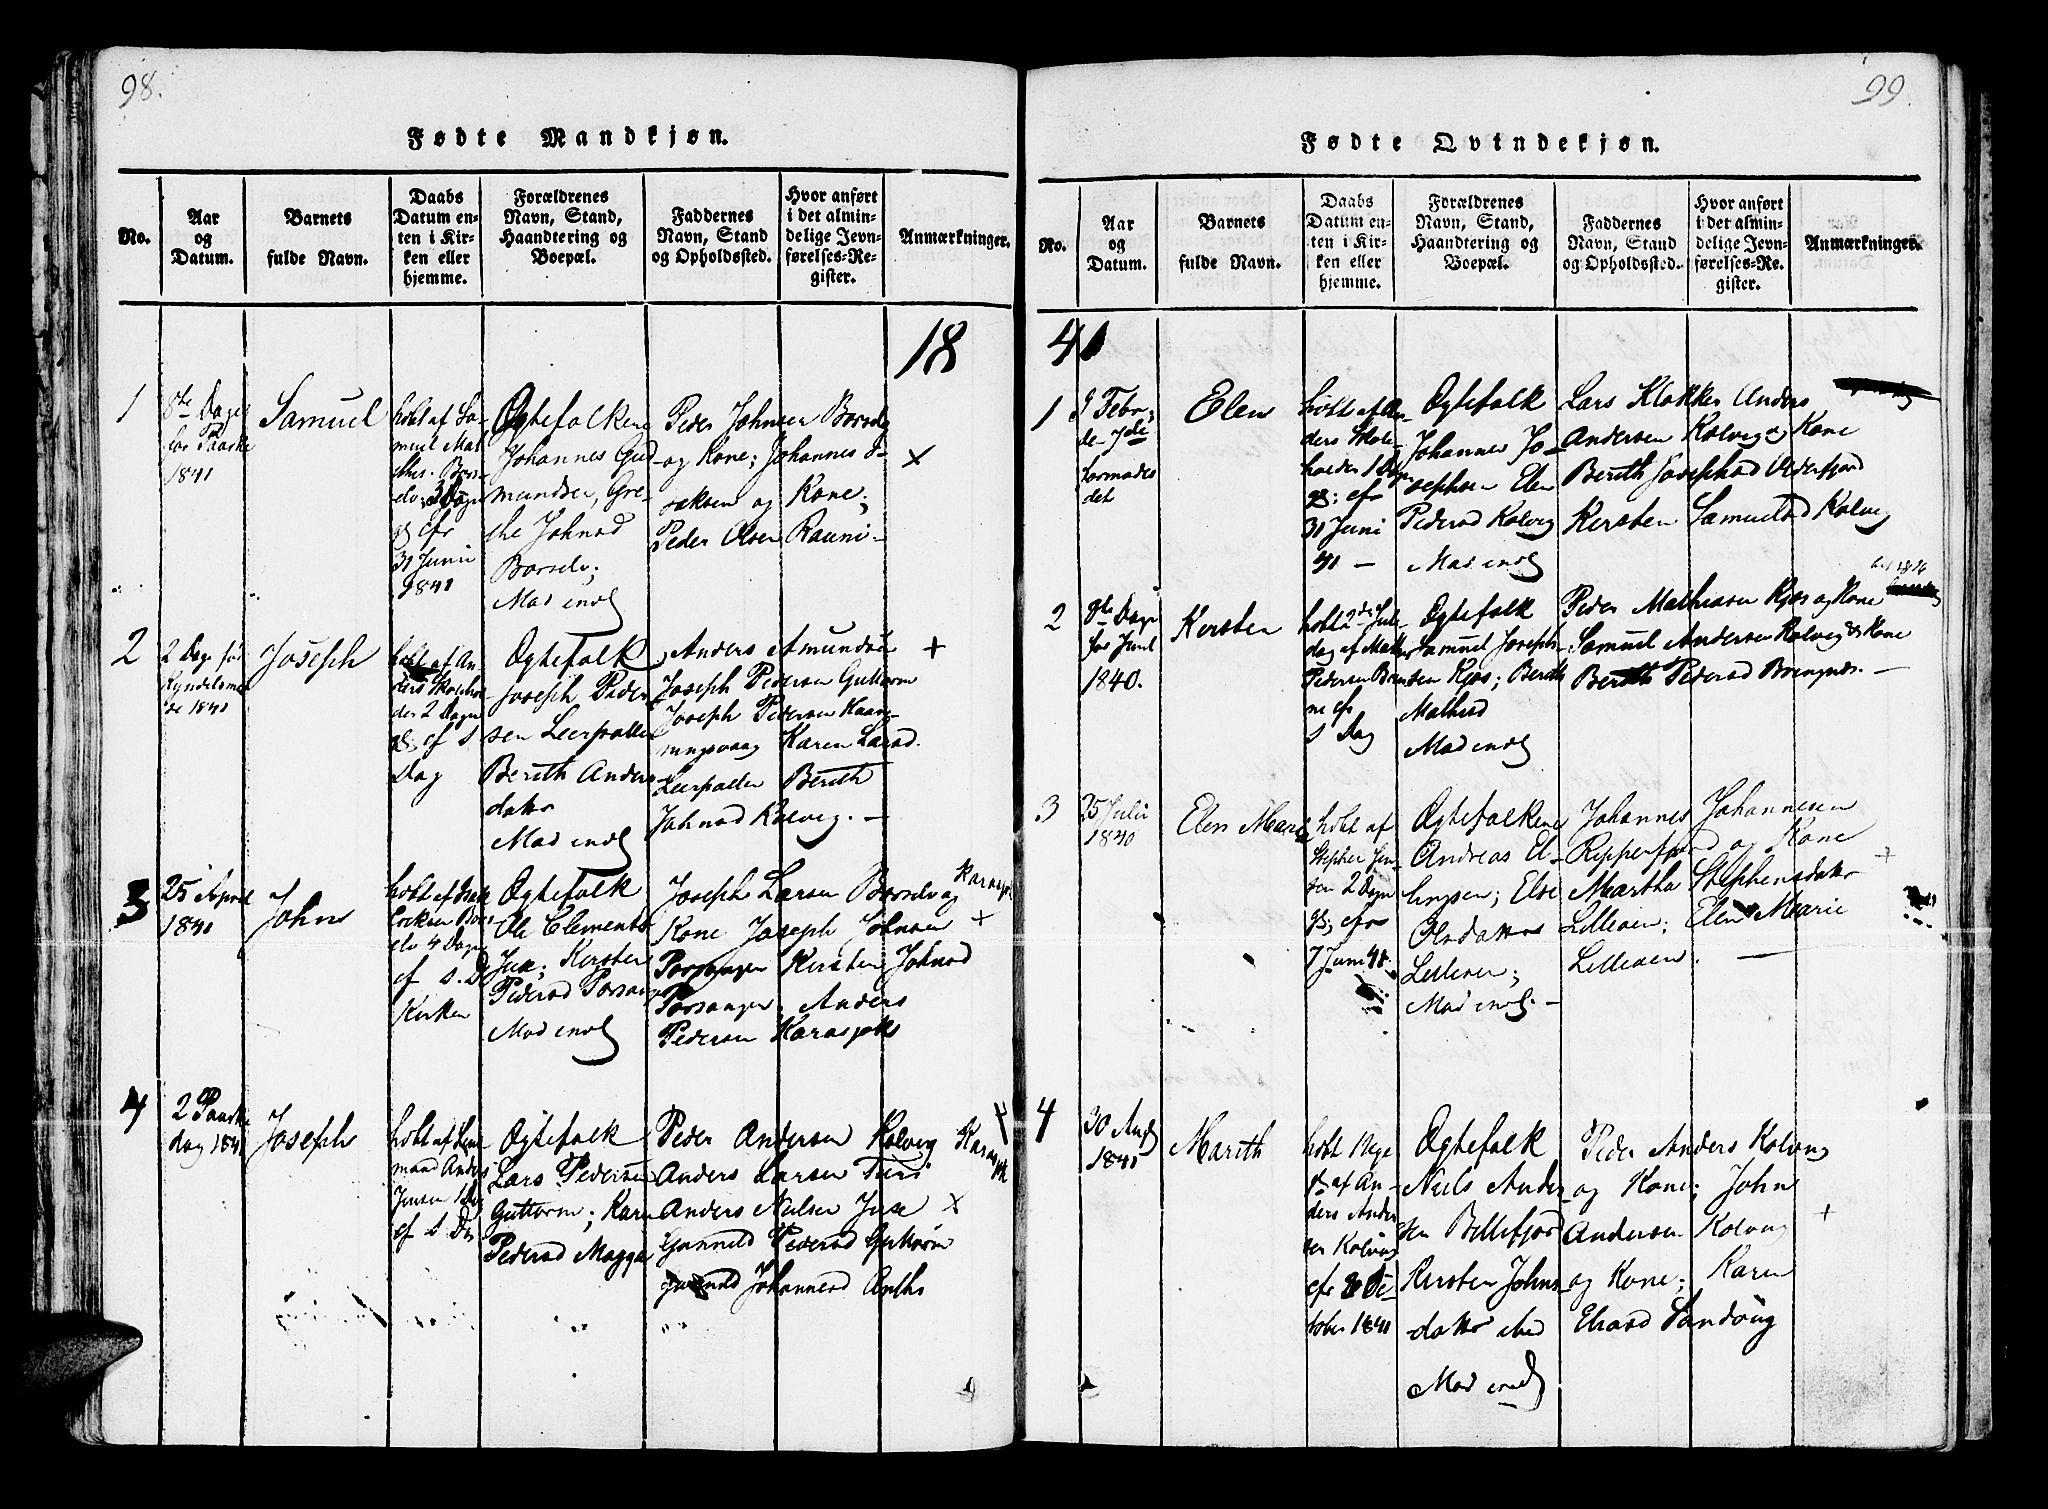 98.
Fødte Mandkjøn.
No.
Aar
og
Datum.
Barnets
fulde Navn.
Daabs
Datum en-
ten i Kir-
ken eller
hjemme.
Forældrenes
Navn, Stand,
Haandtering og
Boepæl.
Faddernes
Navn, Stand
og Opholdssted.
Hvor anført
i det almin-
delige Jevn-
førelses-Re-
gister.
Anmærkninger.
18
1
8te Dage
for Paaske
1841
Samuel
døbt af Sa-
muel Mat
this. Bors-
elv 3 Dage
gl; efr
31 Junii
1841
Ægtefolkene
Johannes Gud
mundsen, Gre-
the Johnsd
Borselv;
Mod indl
Peder Johnsen Borselv
og Kone; Johannes I-
saksen og Kone;
Peder Olsen Rauni-
×
2
2 Dage før
Kyndelsmes
se 1841
Joseph
døbt af An-
ders Skolehol
der 2 Dage
gl; ef s
Dag
Ægtefolk
Joseph Peder
sen Leerpollen
Berith Anders
datter
Mod indl
Anders Amundsen
Joseph Pedersen Guttorm
Joseph Pedersen Kaare-
ningsvaag Karen Larsd.
Leerpollen Berith
Johnsd Kolvig. —
+
3
25 April
1841
John
døbt af Isak
Eriksen Bors
elv 4 Dage
ef s. D.
Kirken
Ægtefolk
Ole Clements
Jux; Kersten
Pedersd Porsanger
Mod indl
Joseph Larsen Borselv og
Kone Joseph Johnsen
Porsanger Kirsten Johnsd
Porsanger. Anders
Pedersen Karasjoks
Karasjok
+
4
2 Paaske
dag 1841
Joseph
døbt af Lens
mand Anders
Jensen 1 Dag
ef s Da
Ægtefolk
Lars Pedersen
Guttorm; Karen
Pedersd Magga
Peder Andersen Kolvig
Anders Larsen Turi
Anders Nielsen Juse
Gunnild Pedersd Guttorm
Gunnild Johannesd Anths
Karasjok
×
99.
Fødte Qvindekjøn.
No.
Aar
og
Datum.
Barnets
fulde Navn.
Daabs
Datum en-
ten i Kir-
ken eller
hjemme.
Forældrenes
Navn, Stand,
Haandtering og
Boepæl.
Faddernes
Navn, Stand
og Opholdssted.
Hvor anført
i det almin-
delige Jevn-
førelses-Re-
gister.
Anmærkninger.
41
1
9 Febr;
Elen
døbt af An-
ders Skole-
holder 1 Dag
gl; efr
31 Juni
41 —
Ægtefolk
Johannes Jo-
sephsen Elen
Pedersd Kolvig
Mod indl
Lars Klokker Anders
Andersen Kolvig og Kone
Berith Josephsd Olderfjord
Kersten Samuelsd Kolvig
2
8te Dage
for Juul
1840.
Kersten
døbt 2den Jule-
dag af Mathis
Pedersen Bren
ne efr
s Dag
Ægtefolk
Samuel Joseph-
sen Kjæs; Berith
Mathisd
Mod indl
Peder Mathisen Kjæs og Kone
Samuel Andersen Kolvig & Kone
Berith Pedersd Brengnæs. —
3
25 Julii
1840
Elen Marie
døbt af
Stephen Jen-
sen 2 Dage
gl; efr
7 Juni 41.
Ægtefolkene
Andreas El-
lingsen; Else
Olsdatter
Lilleven;
Mod indl. —
Johannes Johannesen
Ripperfjord og Kone
Martha Stephensdatter
Lilleven; Elen Marie
Lilleven. —
+
4
30 Aug
1841
Marith
døbt Uge
gl. af An-
ders Ander
sen Kolvig
efr 8 Oc-
tober 1841
Ægtefolk
Niels Ander
sen Billefjord
Kersten Johns-
datter ibid
Mod indl
Peder Anders Kolvig
og Kone; John
Andersen Kolvig
og Kone; Karen
Elrasd Sandvig
+